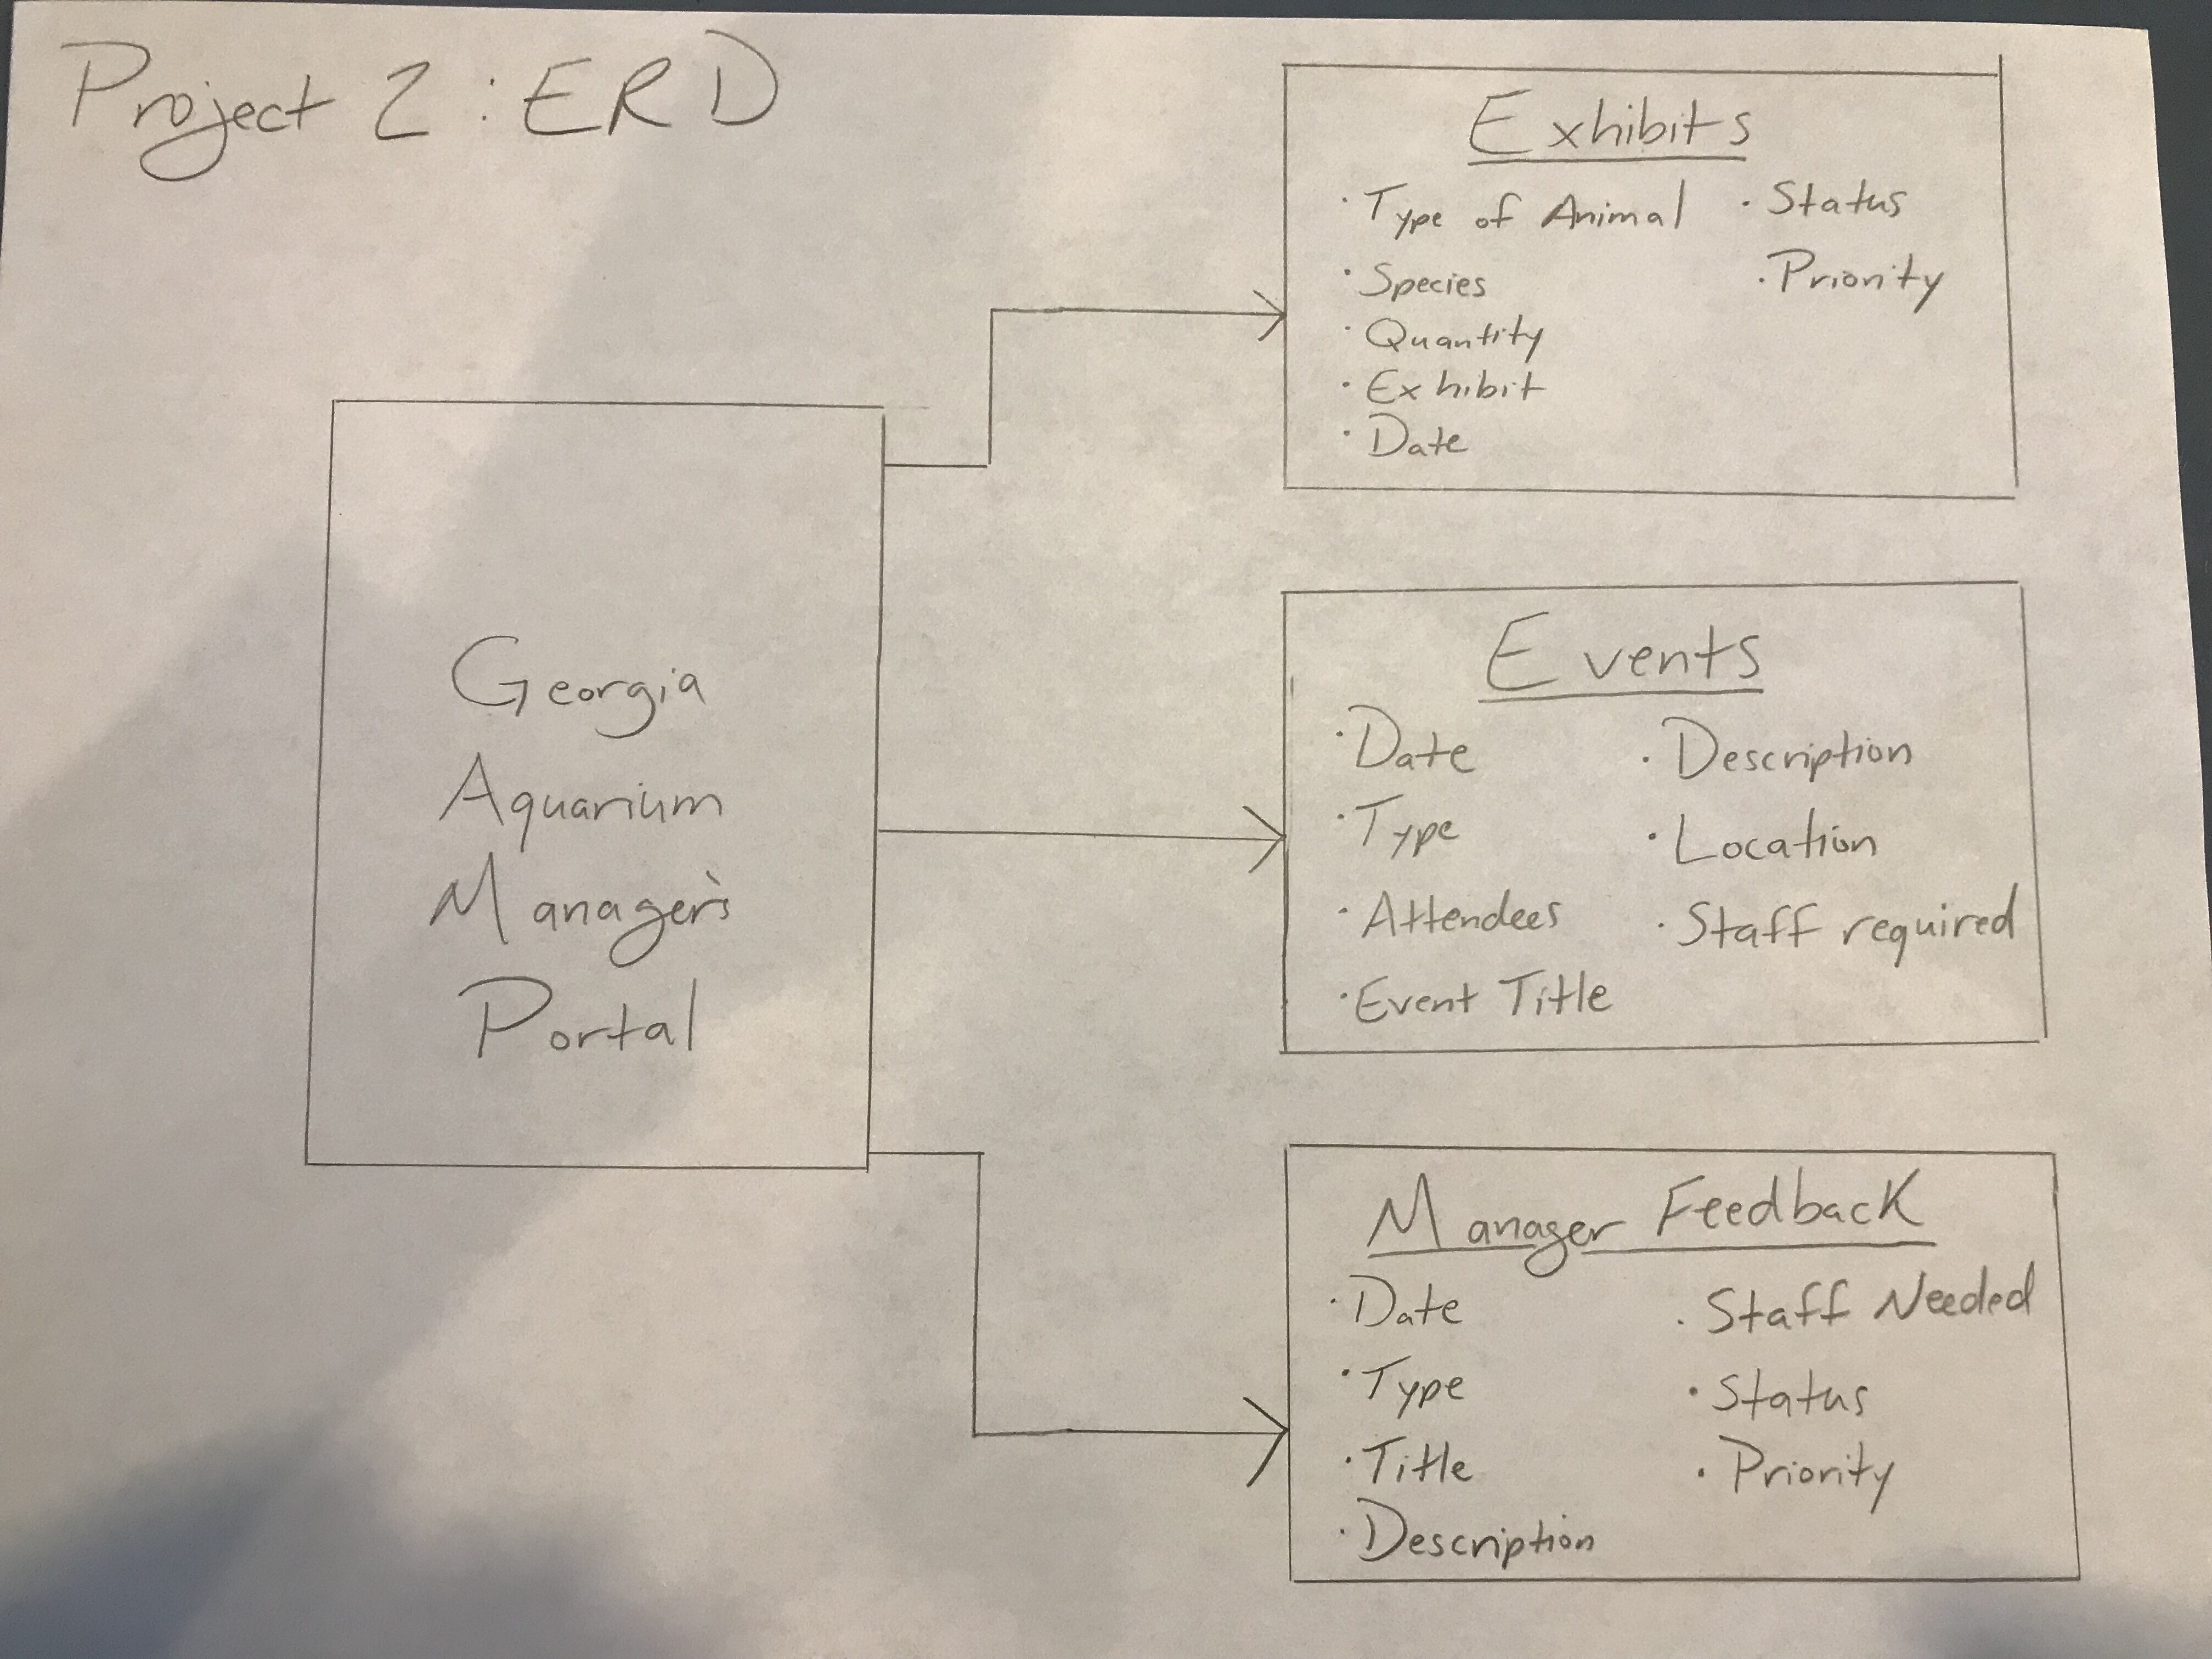 Project 2: ERD
Georgia
Aquarium
Manager's
Portal
Exhibits
· Type of Animal
· Species
· Quantity
· Exhibit
· Date
· Status
· Priority
Events
· Date
· Type
· Attendees
· Event Title
· Description
· Location
· Staff required
Manager Feedback
· Date
· Type
· Title
· Description
· Staff Needed
· Status
· Priority